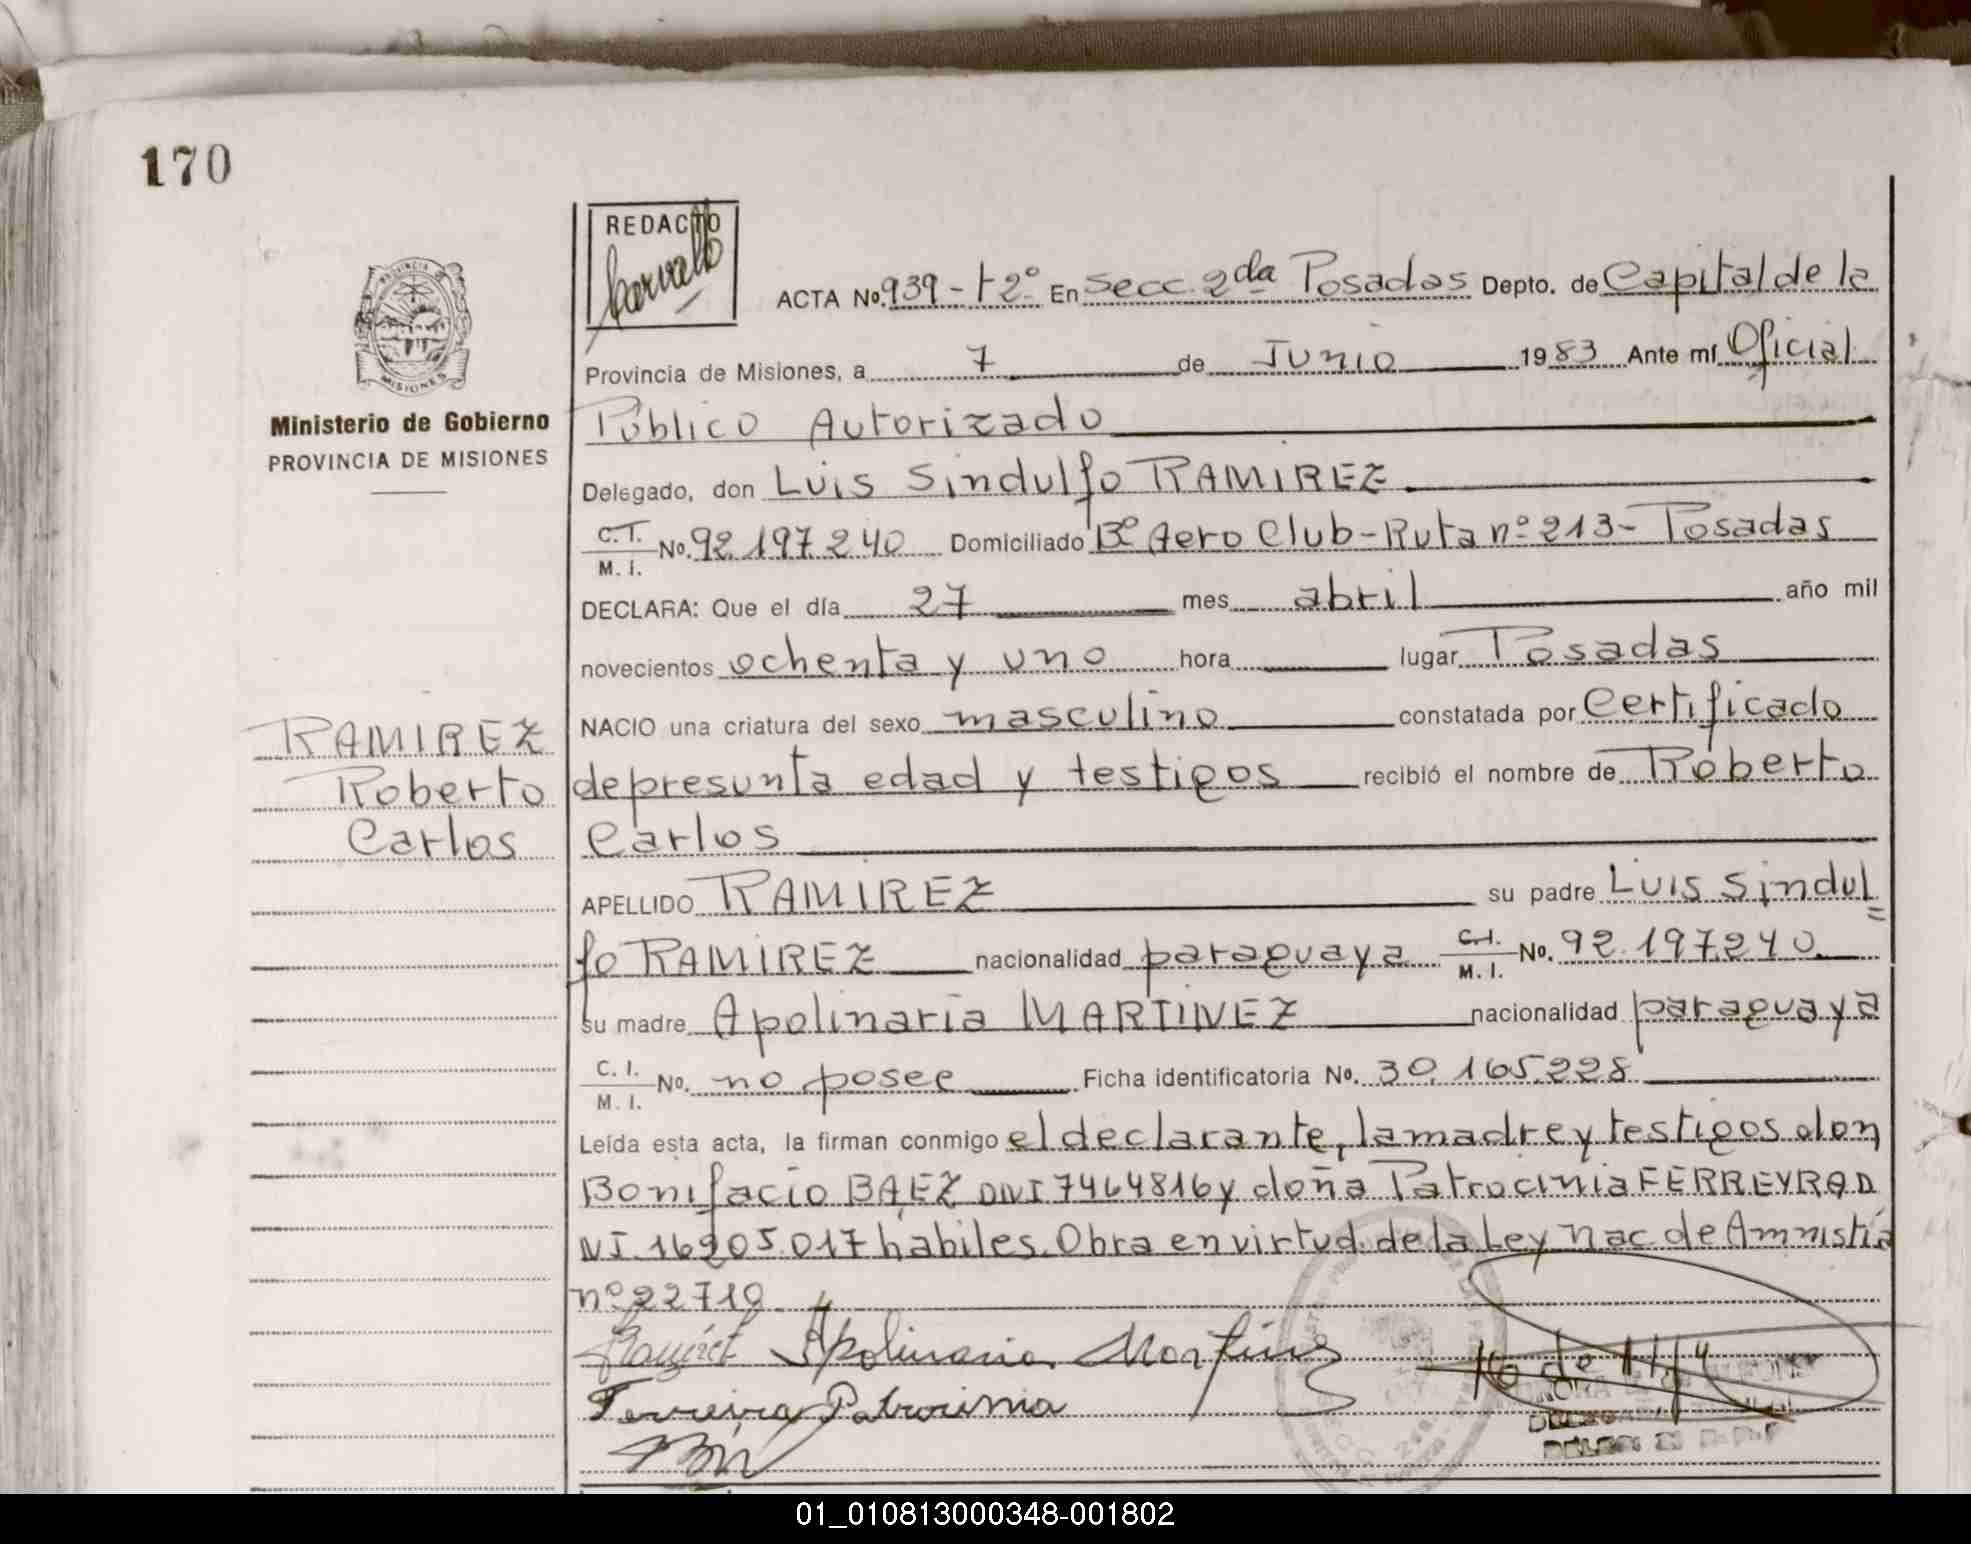 170
REDACTO
ACTA No. 939 - t 2º En Secc. 2da Posadas Depto. de Capital de la
Provincia de Misiones, a 7 de Junio 1983 Ante mí Oficial
Público Autorizado
Delegado, don Luis Sindulfo RAMIREZ
C.I. M. I. No. 92.197.240 Domiciliado Bº Aero Club-Ruta nº 213- Posadas
DECLARA: Que el día 27 mes abril año mil
novecientos ochenta y uno hora lugar Posadas
NACIO una criatura del sexo masculino constatada por Certificado
de presunta edad y testigos recibió el nombre de Roberto
Carlos
APELLIDO RAMIREZ su padre Luis Sindul=
fo RAMIREZ nacionalidad paraguaya C.I. M. I. No. 92.197.240
su madre Apolinaria MARTINEZ nacionalidad paraguaya
C. I. M. I. No. no posee Ficha identificatoria No. 30.165.228
Leída esta acta, la firman conmigo el declarante, la madre y testigos don
Bonifacio BAEZ DNI 7464816 y doña Patrocinia FERREYRA D
NI. 16205.017 habiles. Obra en virtud de la Ley Nac de Amnistía
nº 22710
Apolinaria Martinez
Ferreira Patrocinia
PROVINCIA
MISIONES
Ministerio de Gobierno
PROVINCIA DE MISIONES
RAMIREZ
Roberto
Carlos
01_010813000348-001802